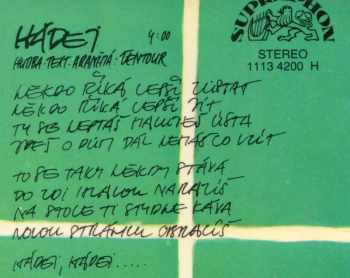 HÁDEJ 4:00
HUDBA-TEXT-ARANŽMÁ-TENTOUR
SUPRAPHON
STEREO
1113 4200 H
NĚKDO ŘÍKÁ LEPŠÍ ZŮSTAT
NĚKDO ŘÍKÁ LEPŠÍ JÍT
TY SE NEPTÁŠ ÚSTA
O DŮM DÁL NEMÁŠ CO VZÍT
TO SE TAKY NĚKDY STÁVÁ
DO ZDI HLAVOU NARAZÍŠ
NA STOLE TI STYDNE KÁVA
NOVOU STRÁNKU OBRACÍŠ
HÁDEJ, HÁDEJ.....